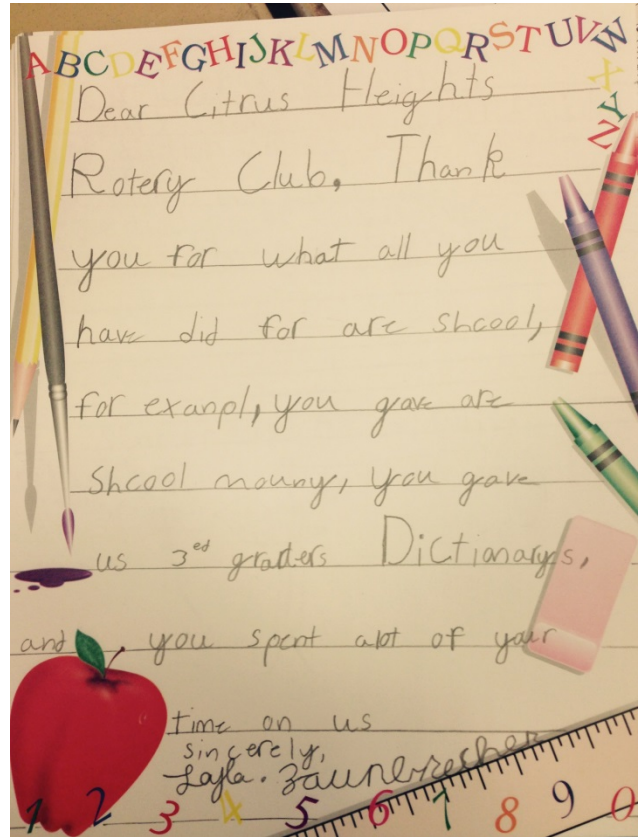 ABCDEFGHIJKLMNOPQRSTUVWXYZ
Dear Citrus Heights
Rotery Club, Thank
you for what all you
have did for are shcool,
for exanpl, you gave are
Shcool mouny, you gave
us 3ed graders Dictionarys,
and you spent alot of your
time on us
sincerely,
Layla.
1 2 3 4 5 6 7 8 9 0